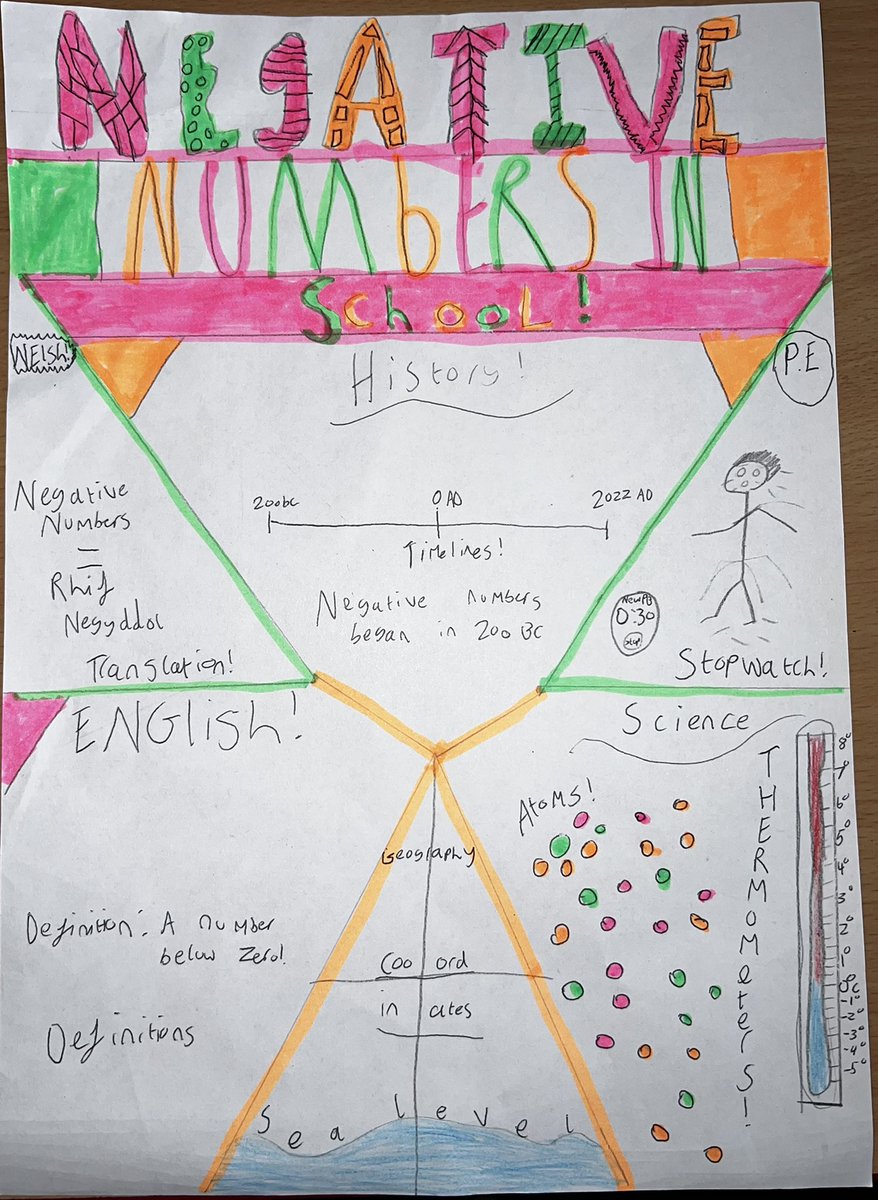 NEgATIVE
NUMbERS IN
SchooL!
WElsh!
Negative
Numbers
=
Rhif
Negyddol
Translation!
History!
200bc
0 AD
2022 AD
Timelines!
Negative numbers
began in 200 BC
P.E
New PB
0:30
Stop
Stopwatch!
ENGlish!
Definition: A number
below Zero!
Definitions
Geography
Coo ord
in ates
Sea level
Science
Atoms!
THERMOMeterS!
8°
7°
6°
5°
4°
3°
2°
1°
0°c
-1°
-2°
-3°
-4°
-5°